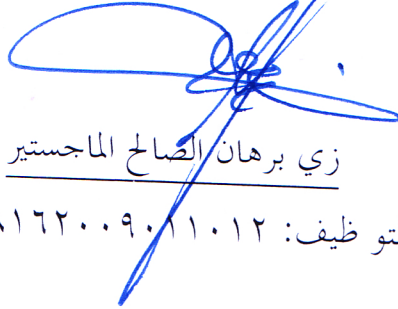 زي برهان الصالح الماجستير
تو ظيف: ١٦٢٠٠٩٠١١٠١٢